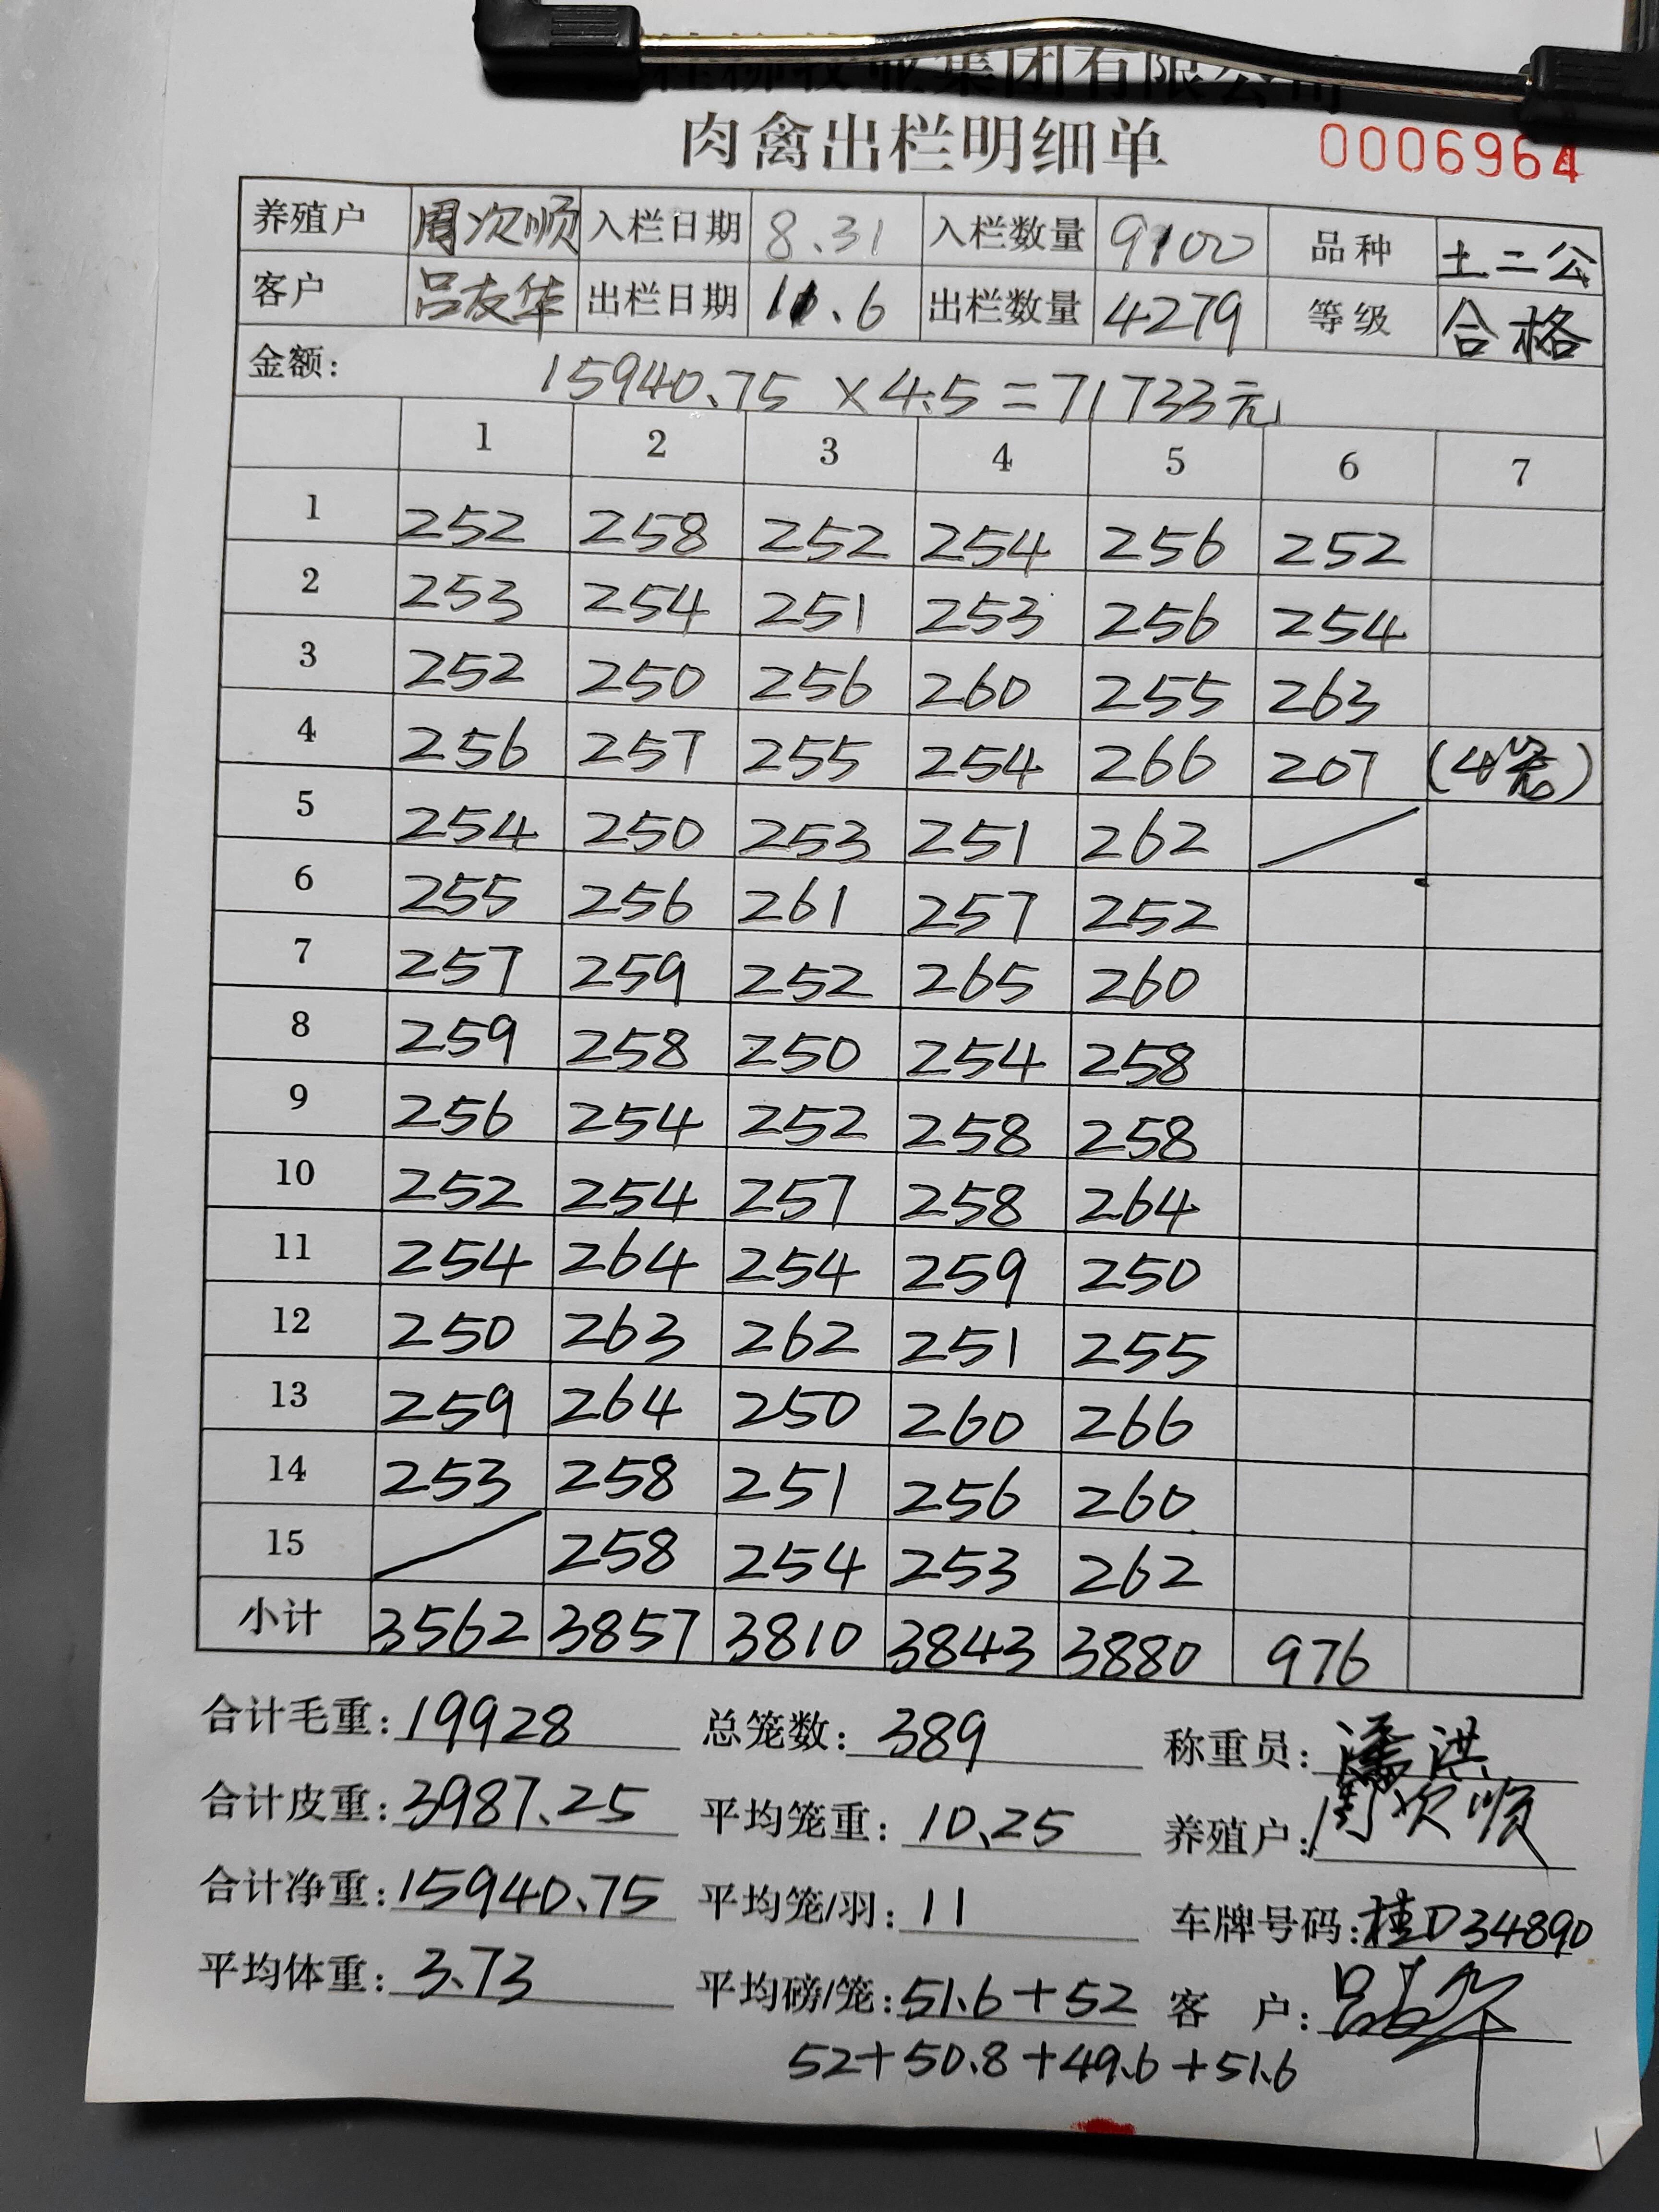 牧业集团有限公司
肉禽出栏明细单 0006964
养殖户 周次顺 入栏日期 8.31 入栏数量 9100 品种 土二公
客户 吕友华 出栏日期 11.6 出栏数量 4279 等级 合格
金额: 15940.75 ×4.5=71733元
1 2 3 4 5 6 7
1 252 258 252 254 256 252
2 253 254 251 253 256 254
3 252 250 256 260 255 263
4 256 257 255 254 266 207 (4笼)
5 254 250 253 251 262 /
6 255 256 261 257 252
7 257 259 252 265 260
8 259 258 250 254 258
9 256 254 252 258 258
10 252 254 257 258 264
11 254 264 254 259 250
12 250 263 262 251 255
13 259 264 250 260 266
14 253 258 251 256 260
15 / 258 254 253 262
小计 3562 3857 3810 3843 3880 976
合计毛重: 19928 总笼数: 389 称重员: 潘洪
合计皮重: 3987.25 平均笼重: 10.25 养殖户: 周次顺
合计净重: 15940.75 平均笼/羽: 11 车牌号码: 桂D34890
平均体重: 3.73 平均磅/笼: 51.6+52 客 户:
52+50.8+49.6+51.6